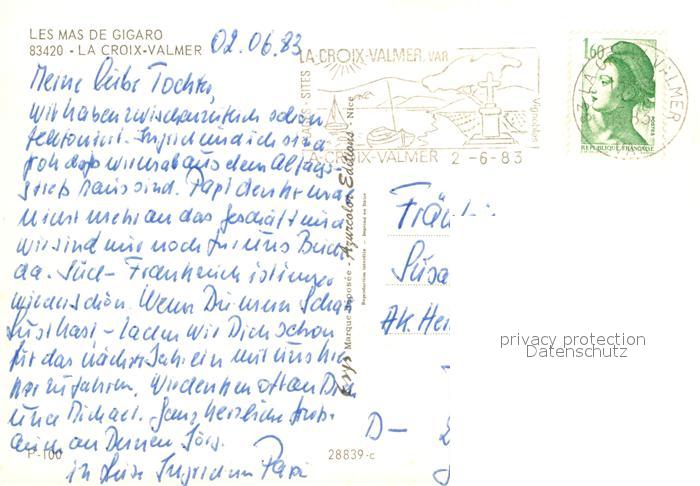 LES MAS DE GIGARO
83420 - LA CROIX-VALMER
02.06.83
Meine liebe Tochter,
wir haben zwischenzeitlich schon
telefoniert. Ingrid und ich sind
froh daß wir mal aus dem Alltags-
streß raus sind. Papi denkt mal
nicht mehr an das Geschäft und
wir sind nur noch für uns Beide
da. Süd-Frankreich ist immer
wieder schön. Wenn Du mein Schatz
Lust hast - laden wir Dich schon
für das nächste Jahr ein mit uns hier
her zu fahren. Wir denken oft an Dich
und Michael. Ganz herzliche Grüße
auch an Deinen Jörg.
in Liebe Ingrid und Papi
P-100
28839-c
LA CROIX-VALMER, VAR
PLAGES - SITES
Vignobles
LA CROIX-VALMER 2-6-83
1,60
POSTES
REPUBLIQUE FRANÇAISE
Marque déposée - Azurcolor Editions - Nice
Reproduction interdite - Imprimé en Italie
Fräu
Susa
Ak. Hei
D-
privacy protection
Datenschutz